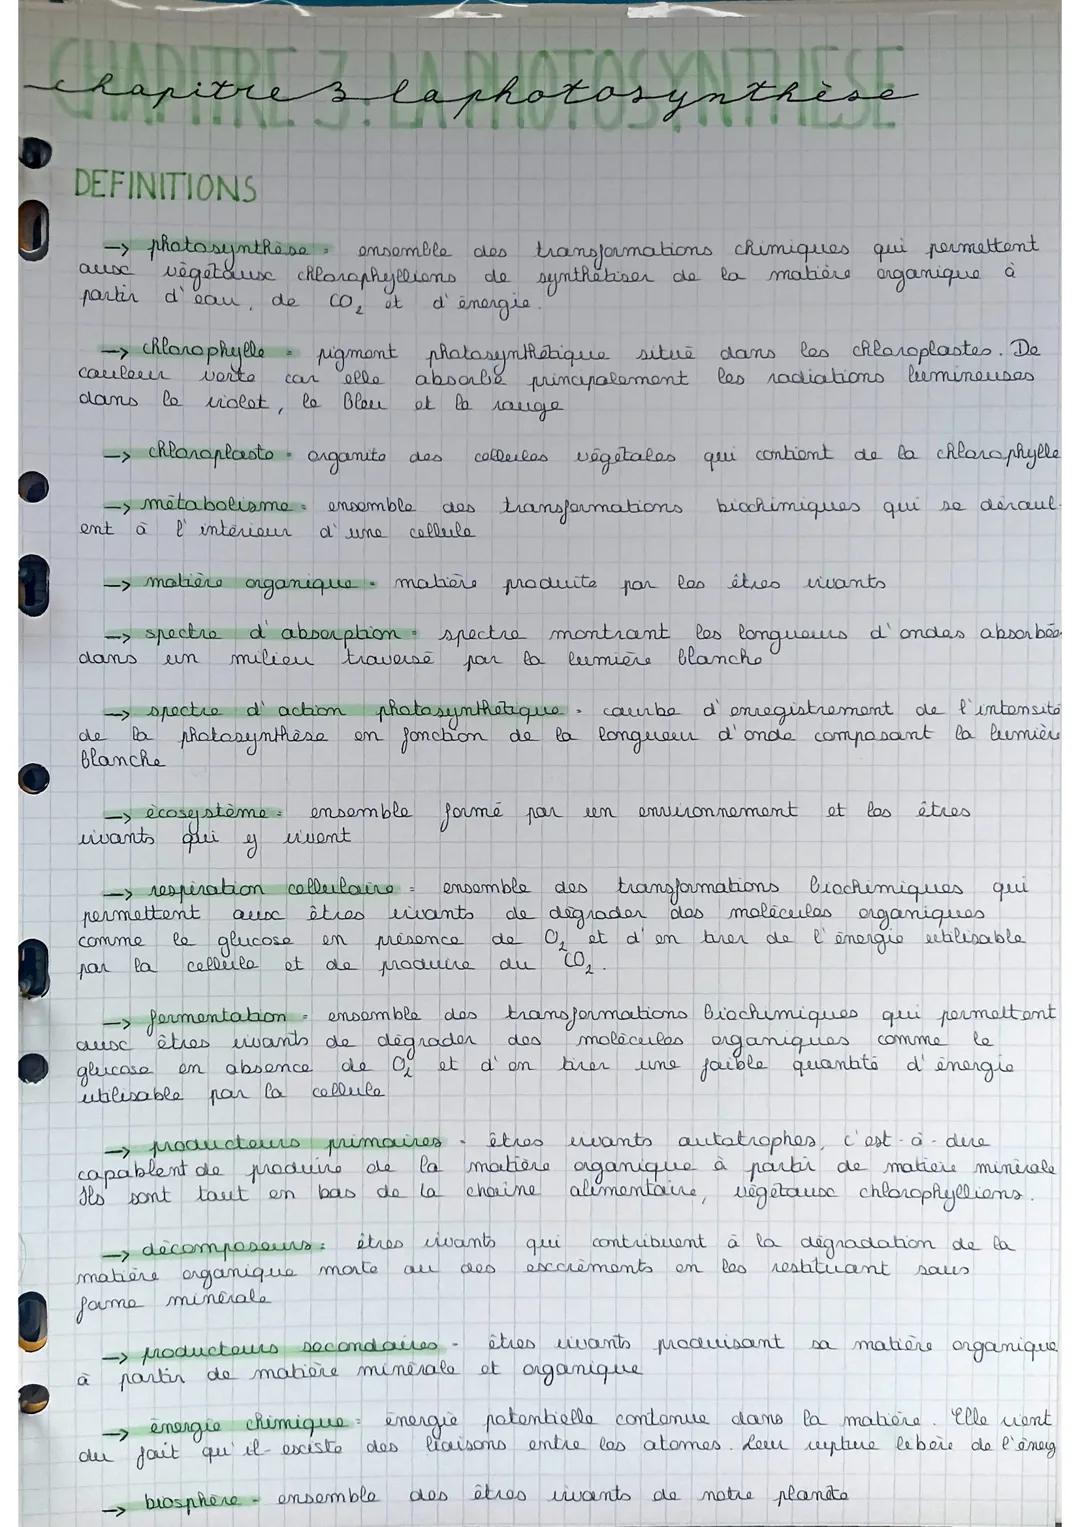 CHAPITRE 3: LA PHOTOSYNTHESE
chapitre 3 la photosynthèse
DEFINITIONS
-> photosynthèse = ensemble des transformations chimiques qui permettent
aux végétaux chlorophylliens de synthétiser de la matière organique à
partir d'eau, de CO₂ et d'énergie.
-> chlorophylle = pigment photosynthétique situé dans les chloroplastes. De
couleur verte car elle absorbe principalement les radiations lumineuses
dans le violet, le bleu et le rouge
-> chloroplaste = organite des cellules végétales qui contient de la chlorophylle
-> métabolisme = ensemble des transformations biochimiques qui se déroul-
ent à l'intérieur d'une cellule
-> matière organique = matière produite par les êtres vivants
-> spectre d'absorption = spectre montrant les longueurs d'ondes absorbées
dans un milieu traversé par la lumière blanche
-> spectre d'action photosynthétique = courbe d'enregistrement de l'intensité
de la photosynthèse en fonction de la longueur d'onde composant la lumière
blanche
-> écosystème = ensemble formé par un environnement et les êtres
vivants qui y vivent
-> respiration cellulaire = ensemble des transformations biochimiques qui
permettent aux êtres vivants de dégrader des molécules organiques
comme le glucose en présence de O₂ et d'en tirer de l'énergie utilisable
par la cellule et de produire du CO₂.
-> fermentation = ensemble des transformations biochimiques qui permettent
aux êtres vivants de dégrader des molécules organiques comme le
glucose en absence de O₂ et d'en tirer une faible quantité d'énergie
utilisable par la cellule
-> producteurs primaires = êtres vivants autotrophes, c'est-à-dire
capablent de produire de la matière organique à partir de matière minérale
Ils sont tout en bas de la chaîne alimentaire, végétaux chlorophylliens.
-> décomposeurs = êtres vivants qui contribuent à la dégradation de la
matière organique morte ou des excréments en les restituant sous
forme minérale
-> producteurs secondaires = êtres vivants produisant sa matière organique
à partir de matière minérale et organique
-> énergie chimique = énergie potentielle contenue dans la matière. Elle vient
du fait qu'il existe des liaisons entre les atomes. Leur rupture libère de l'énerg
-> biosphère = ensemble des êtres vivants de notre planète